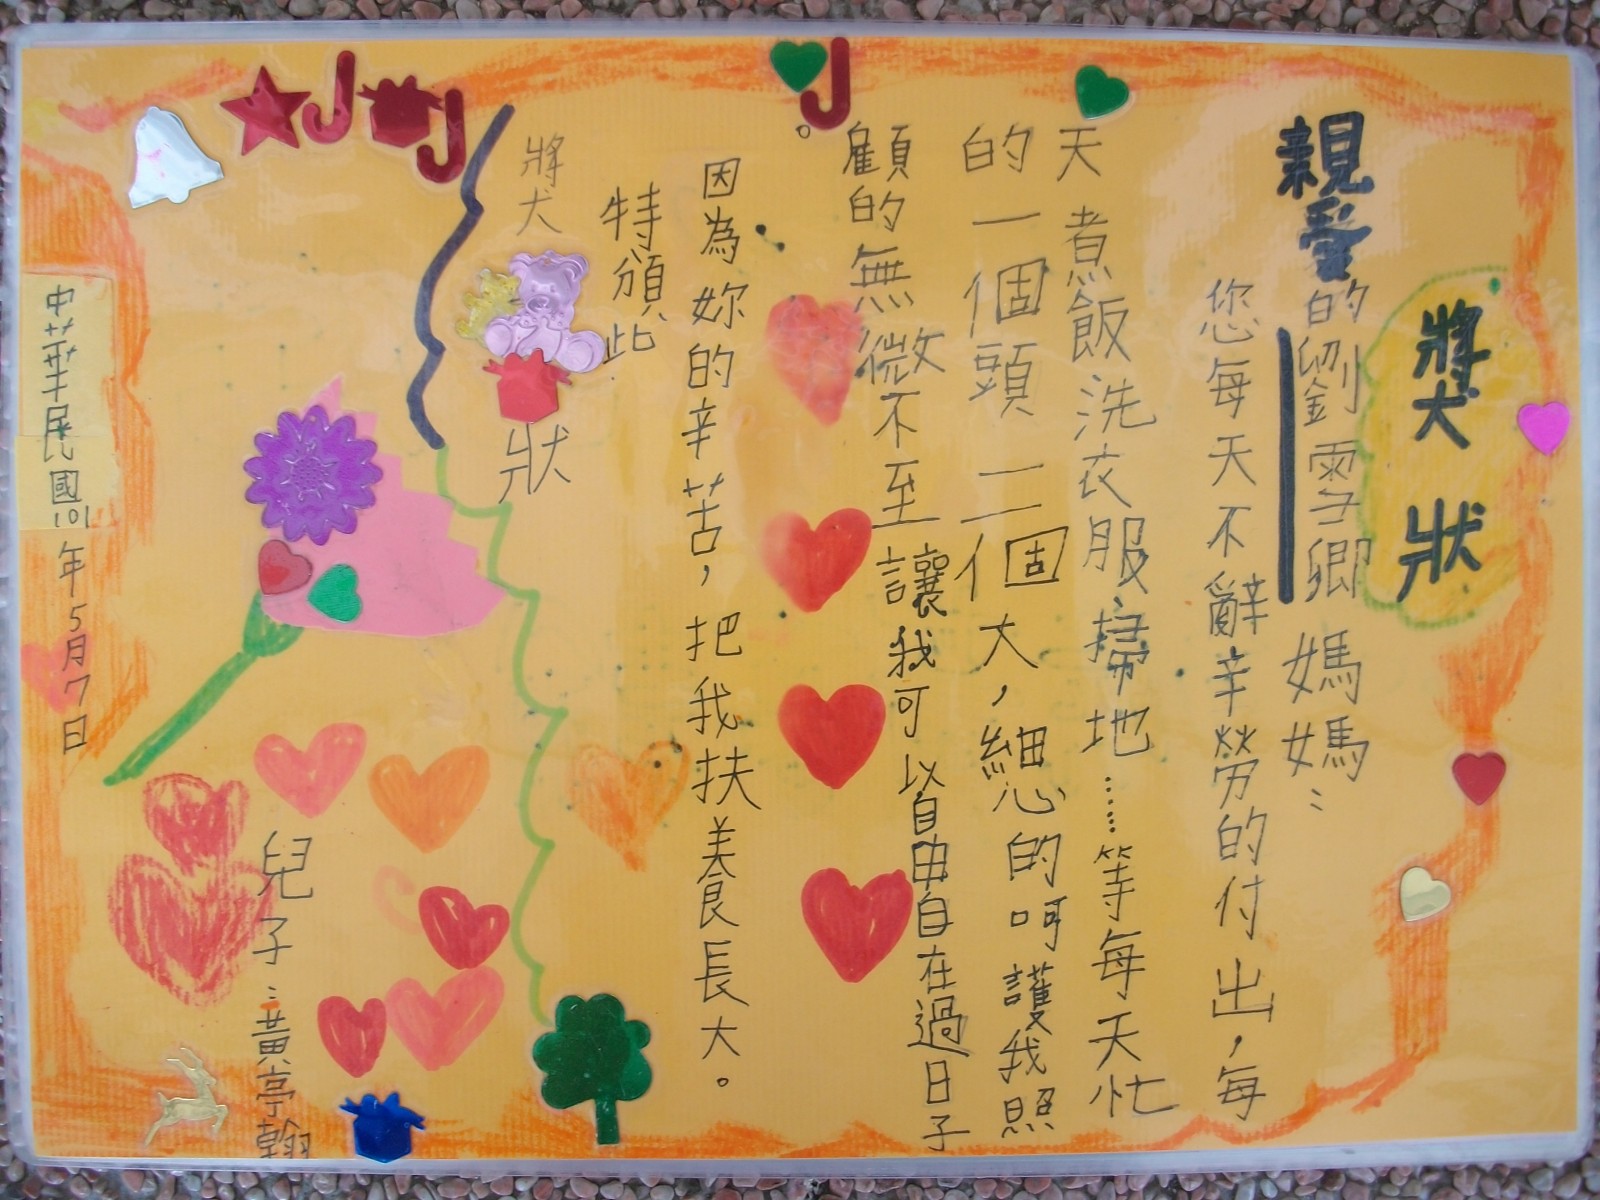 獎狀
親愛的劉雪卿媽媽：
您每天不辭辛勞的付出，每
天煮飯洗衣服、掃地……等每天忙
的一個頭二個大，細心的呵護我照
顧的無微不至讓我可以自由自在過日子
。
因為妳的辛苦，把我扶養長大。
特頒此
獎狀
兒子：黃亭翰
中華民國101年5月7日